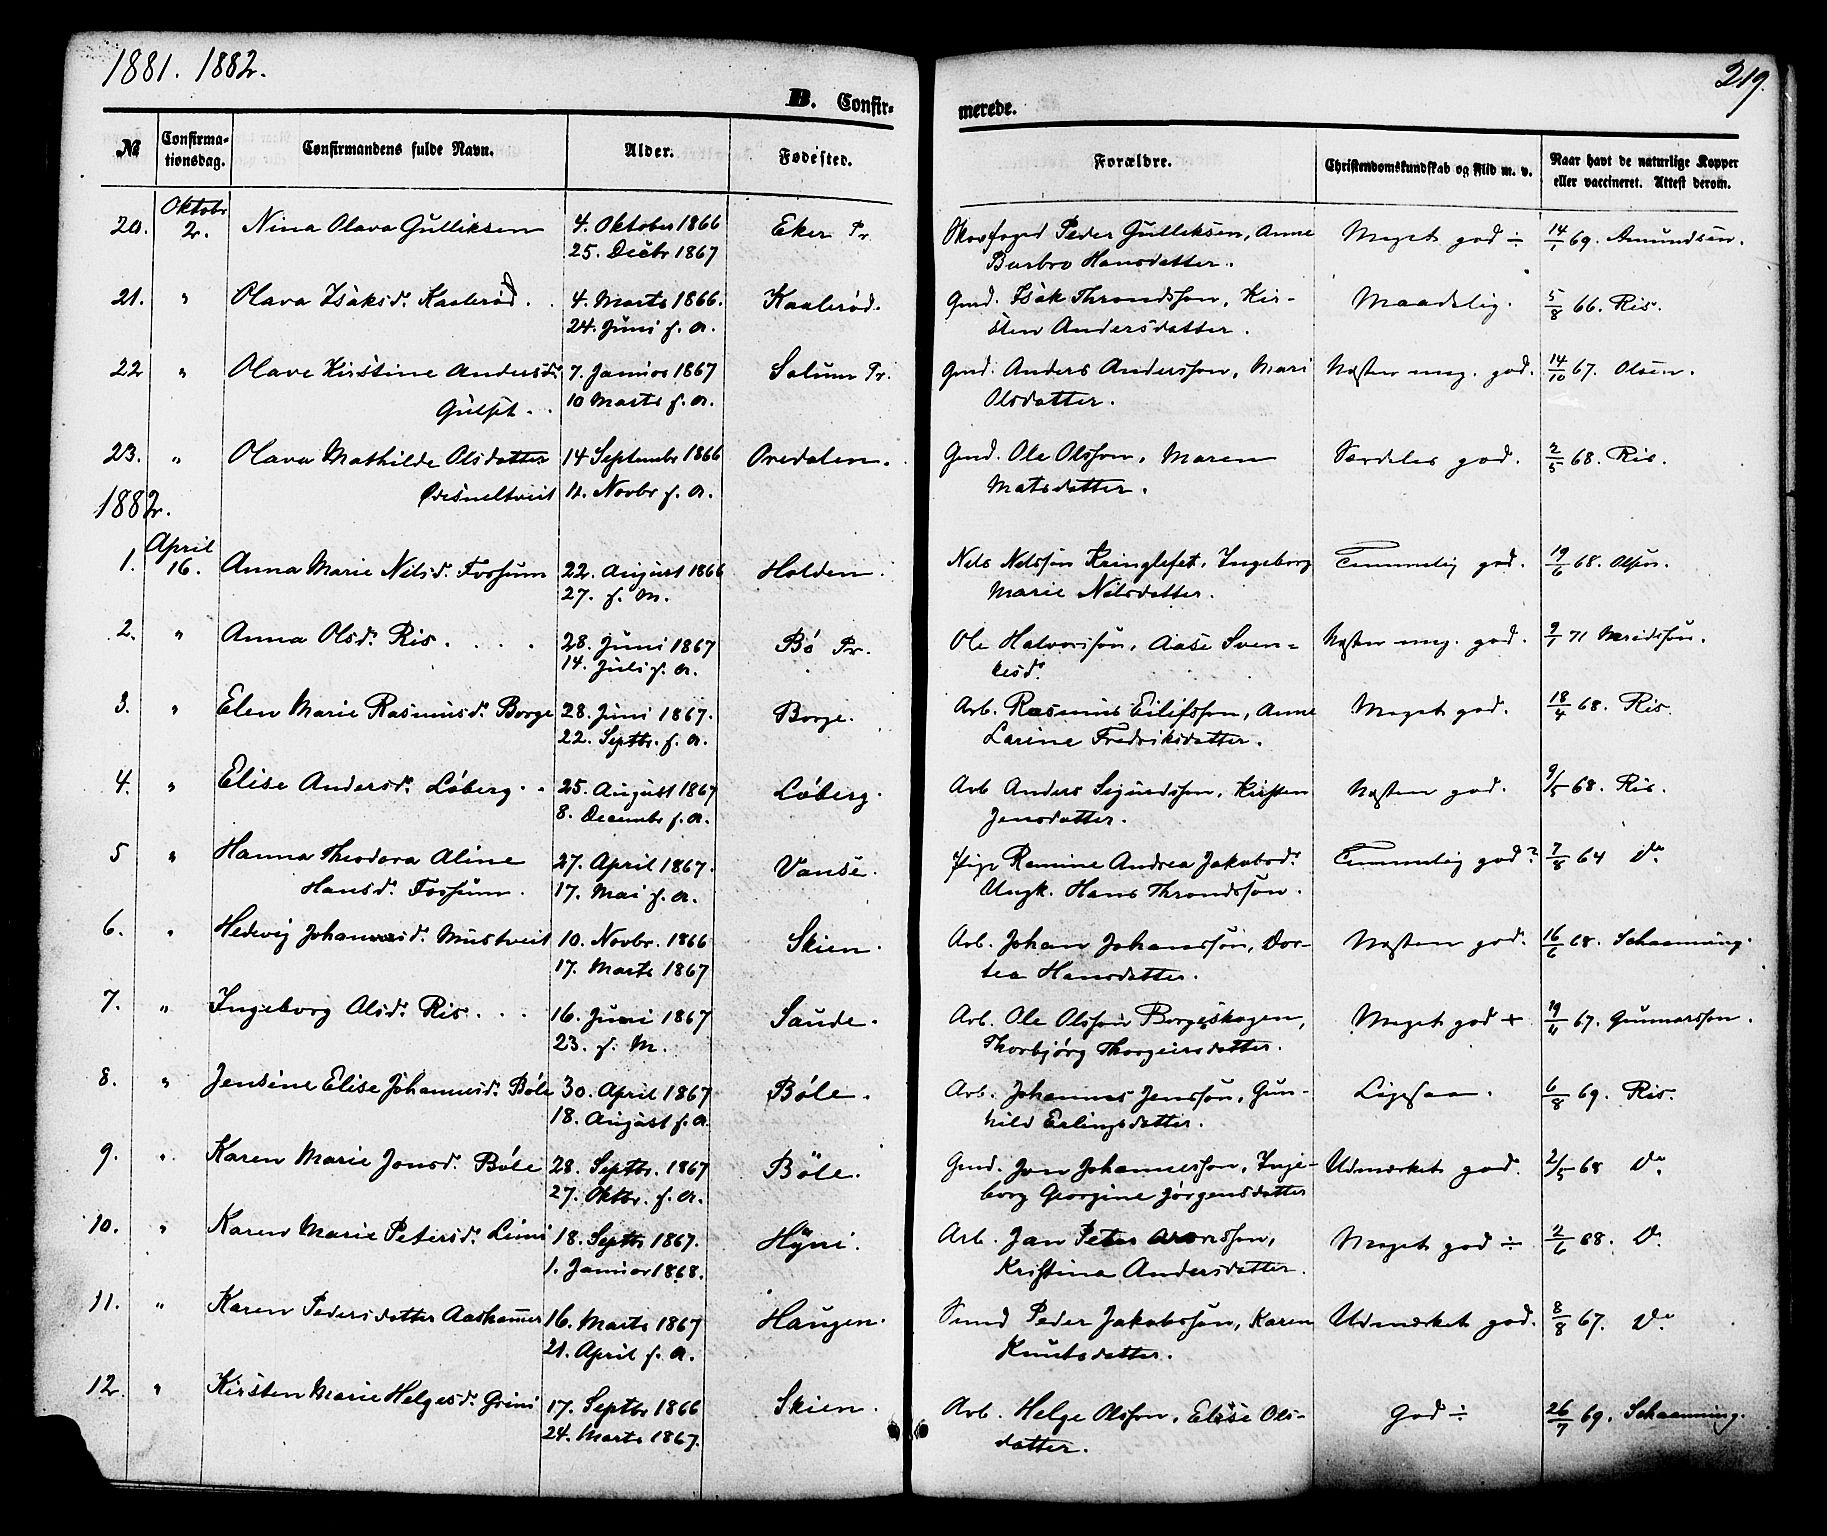 1881. 1882.
219.
B. Confirmerede.
№ Confirmationsdag. Confirmandens fulde Navn. Alder. Fødested. Forældre. Christendomskundskab og Flid m. v. Naar havt de naturlige Kopper eller vaccineret. Attest derom.
20. Oktobr 2. Nina Olava Gulliksen 4. Oktober 1866 Eker Pr. Skovfoged Peder Gulliksen, Anne Meget god ÷ 14/1 69. Amundsen.
25. Decbr 1867 Burbro Hansdatter.
21. " Olava Isaksd. Kaalerød. 4. Marts 1866. Kaalerød. Gmd. Isak Throndssøn, Kir- Maadelig. 5/8 66. Ris.
24. Juni s. A. sten Andersdatter.
22 " Olave Kirstine Andersd. 7. Januar 1867 Solum Pr. Gmd. Anders Anderssøn, Mari Næsten meg. god. 14/10 67. Olsen.
Gulset. 10 Marts s. A. Olsdatter.
23. " Olava Mathilde Olsdatter 14 Septembr 1866 Oredalen. Gmd. Ole Olssøn, Maren Særdeles god. 2/5 68. Ris.
11. Novbr s. A. Matsdatter.
1882.
1. April 16. Anna Marie Nilsd. Fossum 22. August 1866 Holden. Nils Nilssøn Kringlefet, Ingeborg Temmelig god. 19/6 68. Olsen.
27. s. M. Marie Nilsdatter.
2. " Anna Olsd. Ris. 28. Juni 1867 Bø Pr. Ole Halvorssøn, Aase Sven- Næsten meg. god. 9/1 71
14. Juli s. A. kesd.
3. " Elen Marie Rasmusd. Borge 28. Juni 1867. Borge. Arb. Rasmus Eilifssøn, Anne Meget god. 18/4 68. Ris.
22. Septbr. s. A. Larine Fredriksdatter.
4. " Elise Andersd. Løberg. 25. August 1867 Løberg. Arb Anders Sigurdssøn, Kirsten Næsten god. 9/5 68. Ris.
8. Decembr s. A. Jensdatter.
5 " Hanna Theodora Aline 27. April 1867. Vanse. Pige Ramine Andrea Jakobsd. Temmelig god? 7/8 64 Do
Hansd. Fossum. 17. Mai s. A. Ungk. Hans Throndssøn.
6. " Hedevig Johannesd. Mustveit 10. Novbr. 1866 Skien. Arb. Johan Johanssøn, Dor- Næsten god. 16/6 68. Schaanning.
17. Marts 1867 tea Hansdatter.
7. " Ingeborg Olsd. Ris. 16. Juni 1867 Saude. Arb. Ole Olssøn Borgeskogen, Meget god + 19/4 67. Gunnarssøn.
23. s. M. Thorbjørg Thorgeirsdatter.
8. " Jensine Elise Johannesd. Bøle 30. April 1867 Bøle. Arb. Johannes Jenssøn, Gun- Ligesaa. 6/8 69. Ris.
18. August s. A. hild Erlingsdatter.
9. " Karen Marie Jonsd. Bøle 28. Septbr. 1867 Bøle. Gmd. Jon Johannessøn, Inge- Udmærket god. 2/5 68 Do
27. Oktbr. s. A. borg Georgine Jørgensdatter
10. " Karen Marie Petersd. Limi 18. Septbr 1867. Hyni. Arb. Jan Peter Aronssøn, Meget god ÷ 2/6 68. Do
1. Januar 1868. Kristina Andersdatter.
11. " Karen Pedersdatter Aashamer 16. Marts 1867 Haugen. Smed Peder Jakobssøn, Karen Udmærket god. 8/8 67. Do
21. April s. A. Knutsdatter.
12. " Kirsten Marie Helgesd. Grini 17. Septbr 1866 Skien. Arb. Helge Olssøn, Elise Ols- God ÷ 26/7 69. Schaanning.
24. Marts 1867. datter.